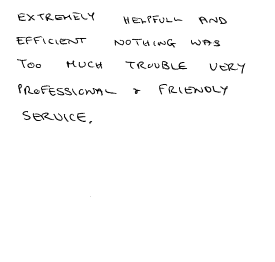 EXTREMELY HELPFULL AND
EFFICIENT NOTHING WAS
TOO MUCH TROUBLE VERY
PROFESSIONAL & FRIENDLY
SERVICE.